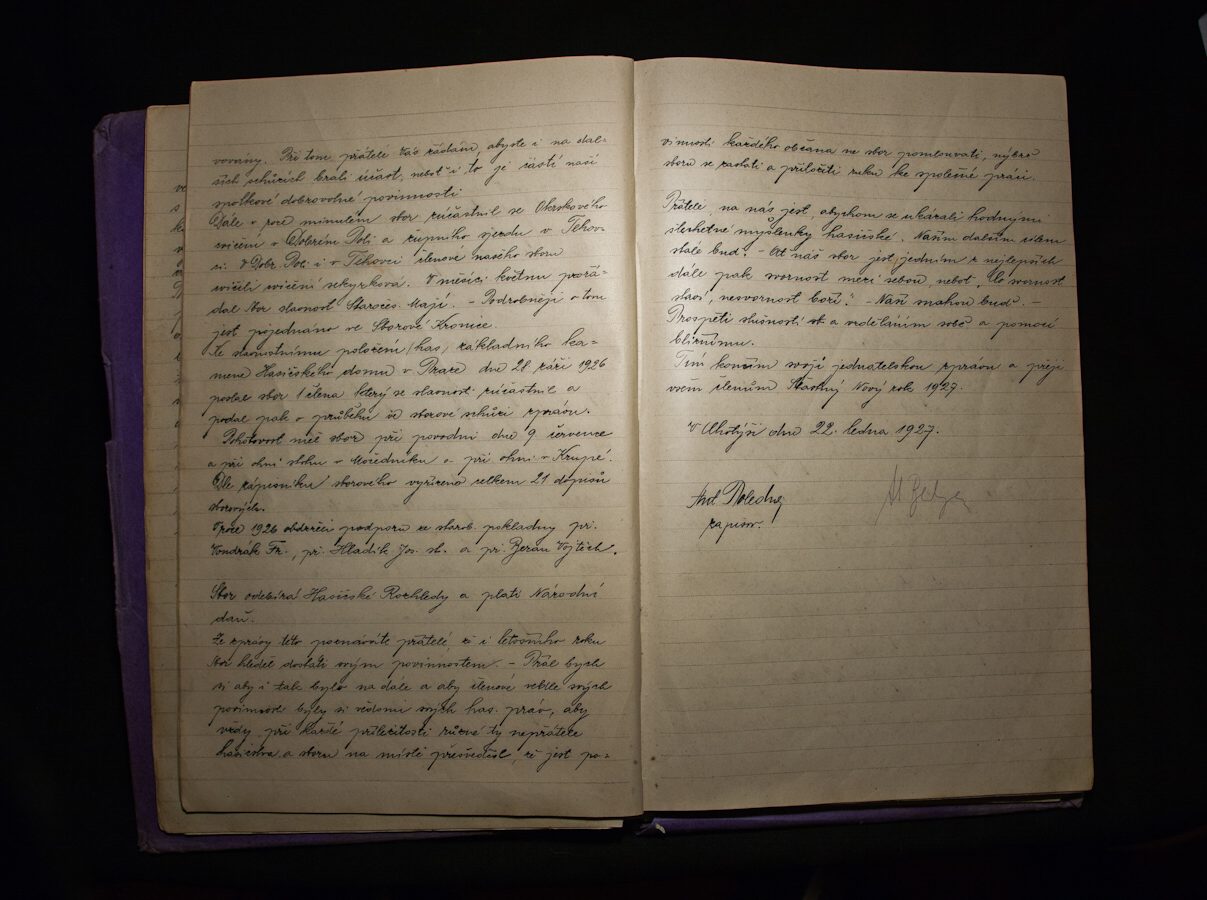 vovány. Při tom, přátelé Vás žádám, abyste i na dal-
ších schůzích brali účast, neboť i to je částí naší
spolkové dobrovolné povinnosti.
Dále v roce minulém sbor zúčastnil se Okrskového
cvičení v Dobrém Poli a župního sjezdu v Tehov-
ci. V Dobr. Poli i v Tehovci členové našeho sboru
cvičili cvičení sekyrková. V měsíci květnu pořá-
dal sbor slavnost Staročes. Máji. – Podrobněji o tom
jest pojednáno ve Sborové Kronice.
Ke slavnostnímu položení (has) základního ka-
mene Hasičského domu v Praze dne 28. září 1926
poslal sbor 1 člena který se slavnosti zúčastnil a
podal pak o průběhu ve sborové schůzi zprávu.
Pohotovost měl sbor při povodni dne 9 července
a při ohni stohu v Mořědníku a při ohni v Krupé.
Dle zápisníku sborového vyřízeno celkem 21 dopisů
V roce 1926 obdrželi podporu ze sborob. pokladny při.
Vondrák Fr., při. Hladík Jos. st. a při. Beran Vojtěch.
Sbor odebírá Hasičské Rozhledy a platí Národní
daň.
Ze zprávy této poznáváte přátelé, že i letošního roku
sbor hleděl dostáti svým povinnostem. – Přál bych
si aby i tak bylo na dále a aby členové vedle svých
povinností byli si vědomi svých has. práv, aby
vždy při každé příležitosti různé ty nepřátele
hasičstva a sboru na místě přesvědčil, že jest po-
vinností každého občana ne sbor pomlouvati, nýbrž
sboru se zastati a přiložiti ruku ke společné práci.
Přátelé, na nás jest, abychom se ukázali hodnými
šlechetné myšlenky hasičské. Naším dalším cílem
stále buď: – Ať náš sbor jest jedním z nejlepších
dále pak svornost mezi sebou, neboť „Co svornost
staví, nesvornost boří“. – Naší snahou buď: –
Prospěti slušností st. a vzděláním sobě a pomocí
bližnímu.
Tím končím svojí jednatelskou zprávu a přeji
všem členům Šťastný Nový rok 1927.
V Lhotýši dne 22. ledna 1927.
Ant. Poledne
zapisov.